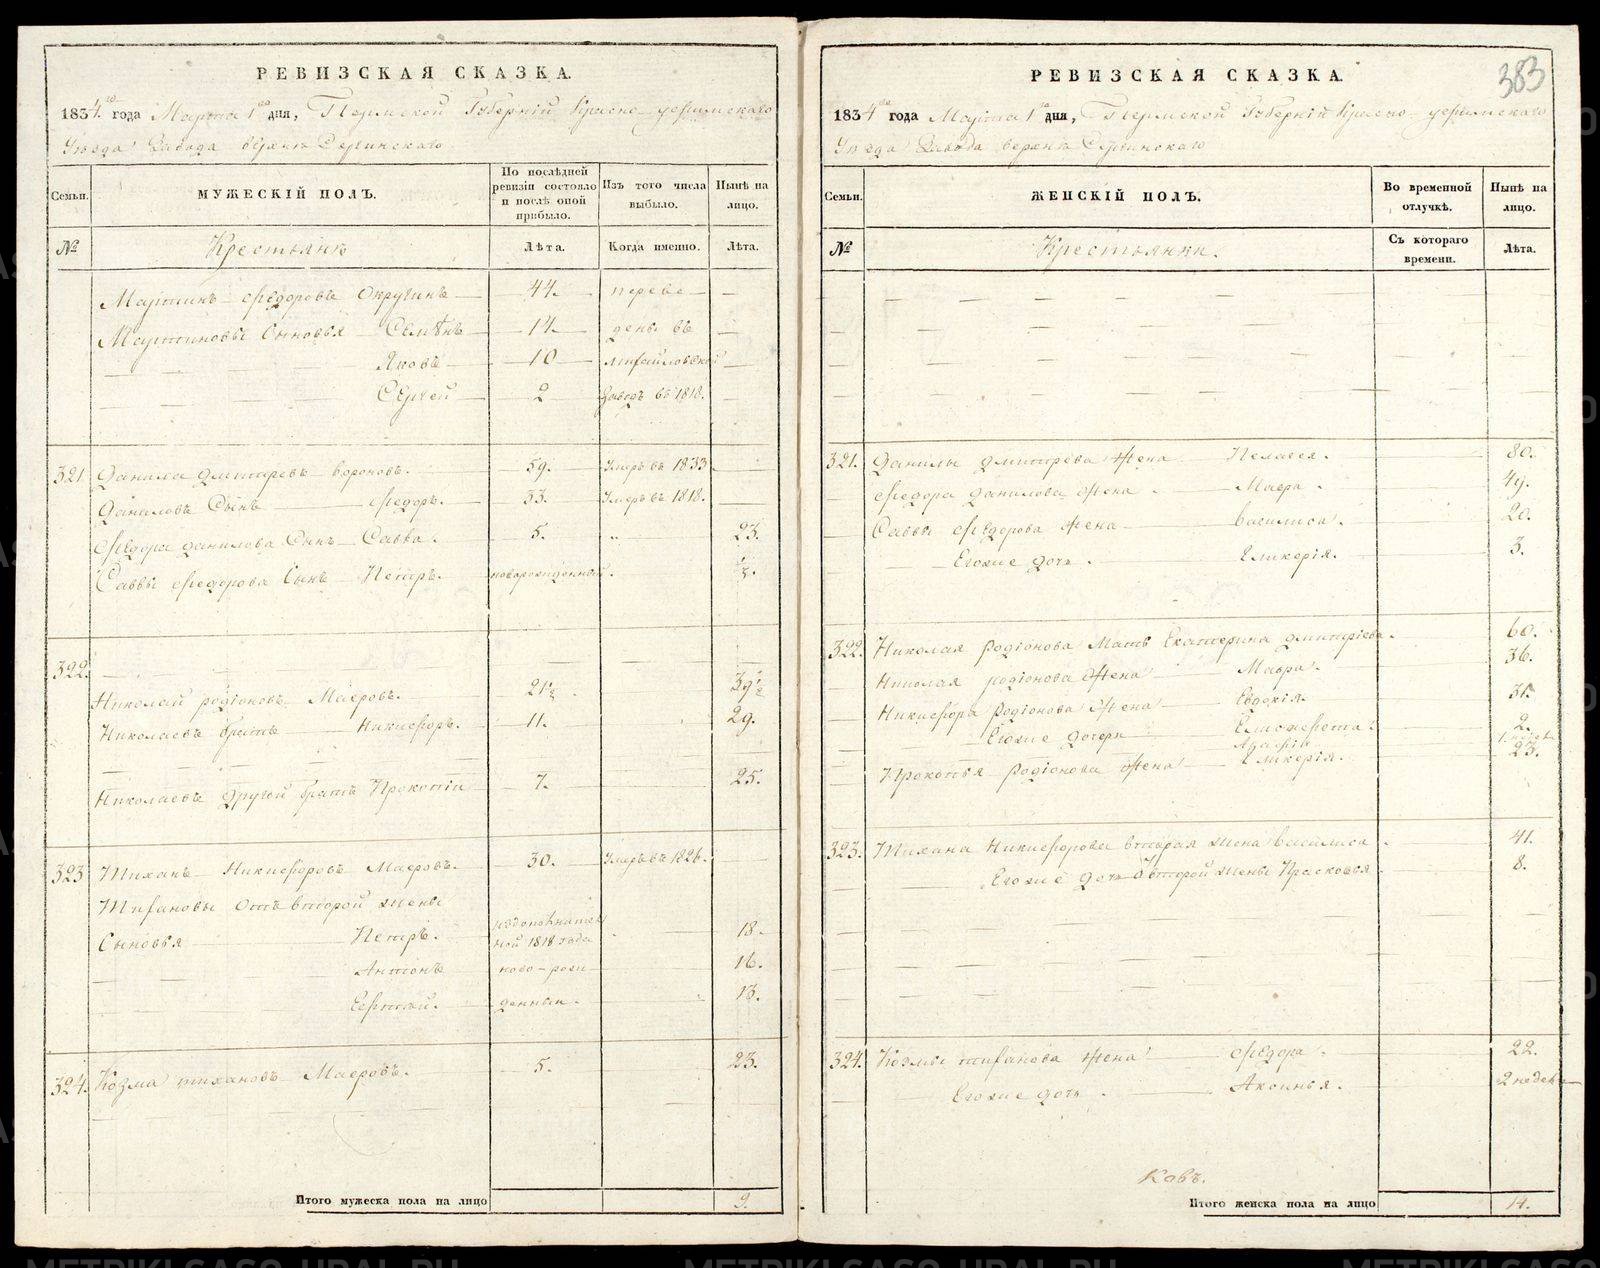 РЕВИЗСКАЯ СКАЗКА.
1834 года Марта 1го дня, Пермской Губерній Красно-уфимскаго
Уезда Завода верхнъ Сергинскаго
Семьи.
МУЖЕСКІЙ ПОЛЪ.
По послѣдней ревизіи состояло и послѣ оной прибыло.
Изъ того числа выбыло.
Нынѣ на лицо.
№
Крестьянъ
Лѣта.
Когда именно.
Лѣта.
Мартинъ Федоровъ Округинъ 44. переве
Мартиновы Сыновья Семѣнъ 14 дены въ
Яковъ 10 михайловской
Сергей 2 Заводъ въ 1818.
321 Данила дмитревъ вороновъ. 59. Умеръ въ 1833
Даниловъ Сынъ Федоръ. 33. Умеръ въ 1818.
Федора данилова Сынъ Савва. 5. 23.
Саввы Федорова Сынъ Петръ. новорожденный. ½.
322
Николай родіоновъ Маеровъ. 21½. 39½
Николаевъ братъ Никифоръ. 11. 29.
Николаевъ другой братъ Прокопiи 7. 25.
323 Тиханъ Никифоровъ Маеровъ. 30. Умеръ въ 1826.
Тифановы отъ второй жены
Сыновья Петръ. 1818 года 18.
Антонъ ново-рож 16.
денныи. 13.
324. Козма тихановъ Маеровъ. 5. 23.
Итого мужеска пола на лицо 9.
383
РЕВИЗСКАЯ СКАЗКА.
1834 года Марта 1го дня, Пермской Губерній Красно-уфимскаго
Уезда Завода верхнъ Сергинскаго
Семьи.
ЖЕНСКІЙ ПОЛЪ.
Во временной отлучкѣ.
Нынѣ на лицо.
№
Крестьянки.
Съ котораго времени.
Лѣта.
321. Данилы дмитрева Жена Пелагея. 80.
Федора данилова Жена Мавра. 49.
Саввы Федорова Жена Василиса. 20.
Егоже дочь. Гликерія. 3.
322. Николая родіонова Мать Екатерина дмитріева. 60.
Николая родіонова Жена Мавра. 36.
Никифора родіонова Жена Евдокія. 31.
Егоже дочери Елисавета. 2.
Прокопья родіонова Жена Гликерія. 23.
323. Тихана Никифорова вторая жена василиса 41.
Егоже дочь О второй жены Прасковья 8.
324. Козмы тифанова Жена Федора. 22.
Егоже дочь. Аксинья. 2 недел
Ковъ.
Итого женска пола на лицо 14.
METRIKI.GASO-URAL.RU
METRIKI.GASO-URAL.RU
METRIKI.GASO-URAL.RU